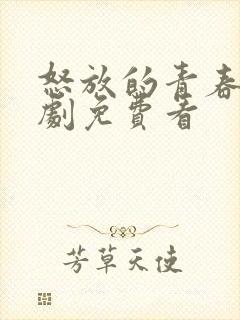 怒放的青春
劇免費看
芳草天使